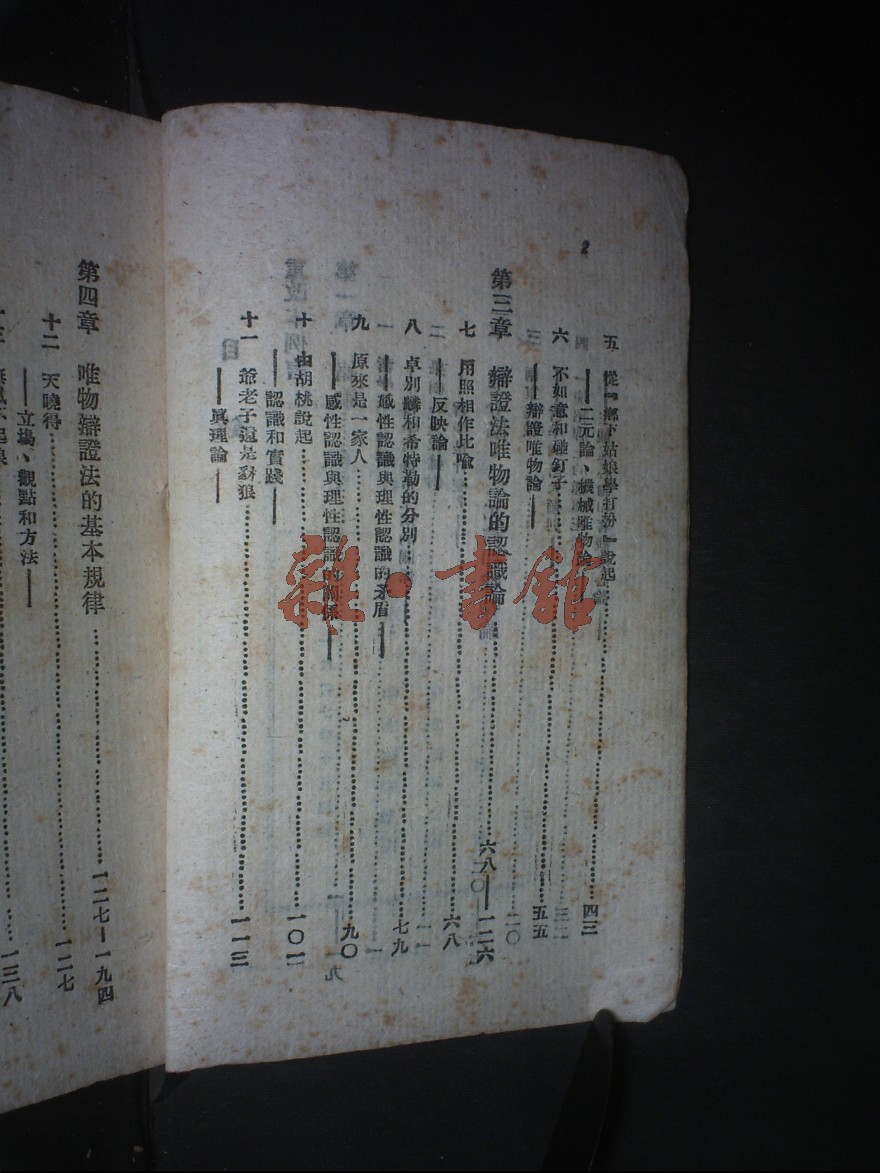 2
五 從「鄉下姑娘學打扮」說起……四三
——二元論、機械唯物論——
六 不如意和碰釘子……五五
——辯證唯物論——
第三章 辯證法唯物論的認識論……六八——一二六
七 用照相作比喻……六八
——反映論——
八 卓別麟和希特勒的分別……七九
——感性認識與理性認識的矛盾——
九 原來是一家人……九〇
——感性認識與理性認識的關係——
十 由胡桃說起……一〇一
——認識和實踐——
十一 爺老子還是豺狼……一一三
——眞理論——
第四章 唯物辯證法的基本規律……一二七—一九四
十二 天曉得……一二七
——立場、觀點和方法——
……一三八
雜·書館